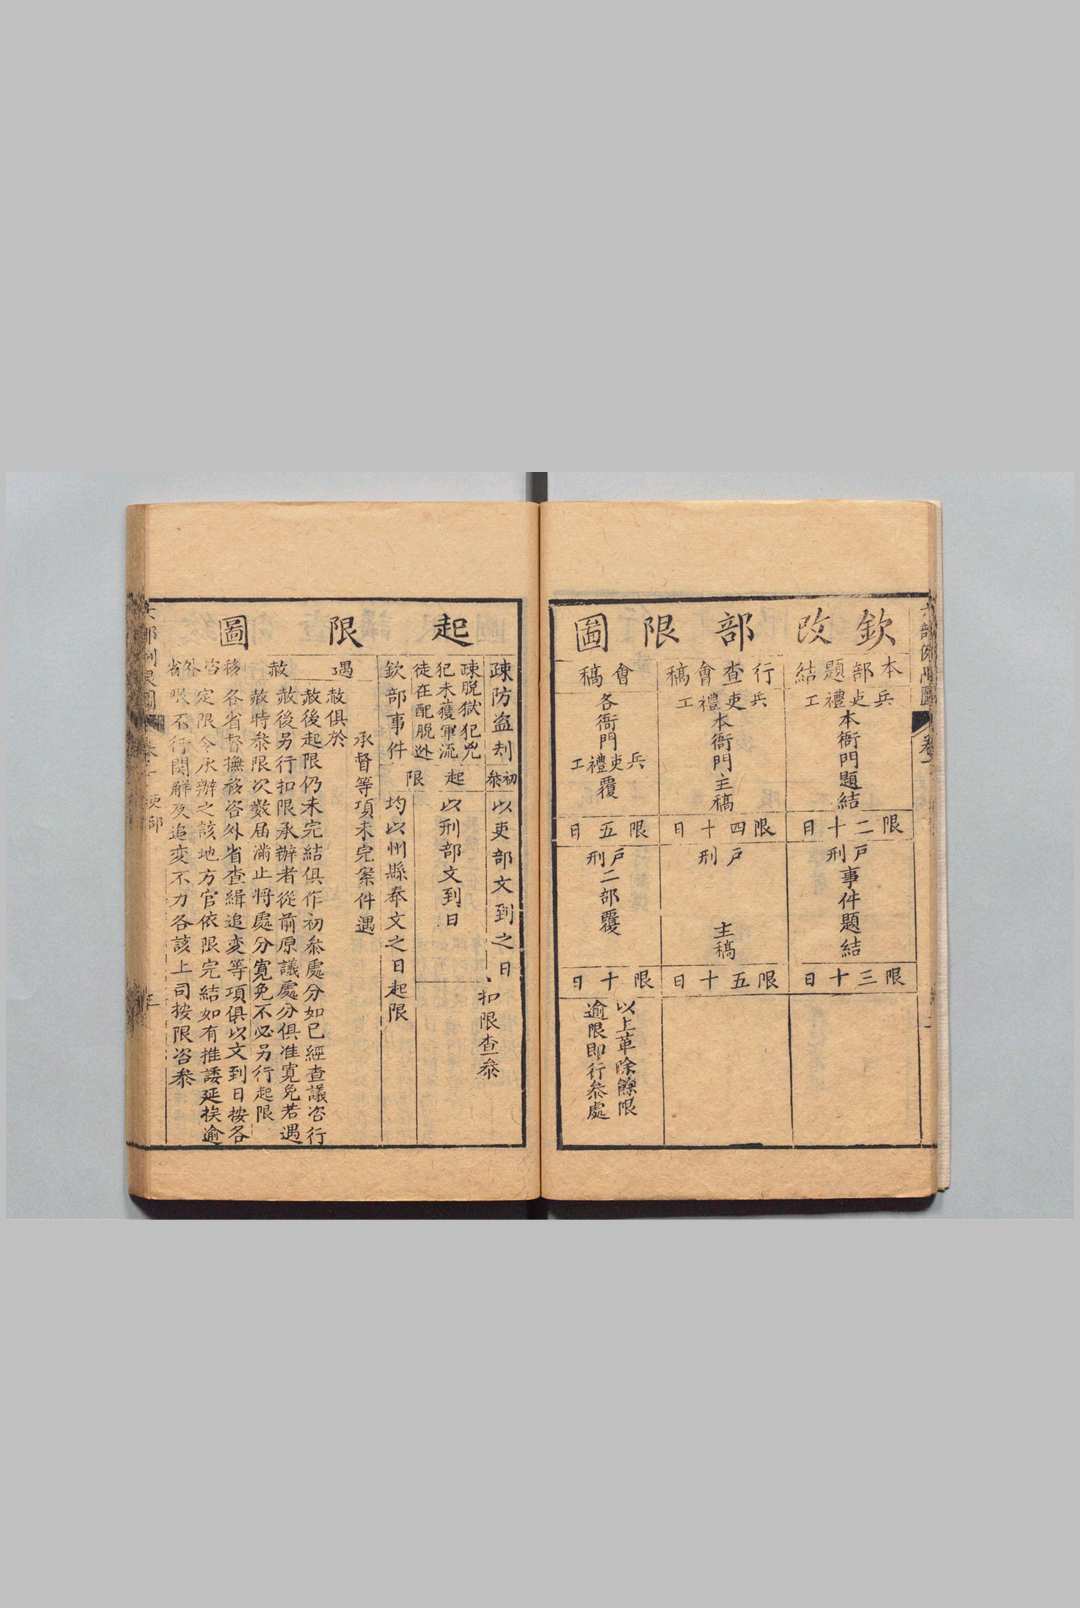 欽改部限圖
本部題結
兵吏禮工
本衙門題結
限二十日
戶刑
事件題結
限三十日
行查會稿
兵吏禮工
本衙門主稿
限四十日
戶刑
主稿
限五十日
會稿
各衙門
兵吏禮工
覆
限五日
戶刑
二部覆
限十日
以上革除餘限
逾限即行叅處
起限圖
疎防盗刦
初叅
以吏部文到之日扣限查叅
疎脫獄犯兇
犯未獲軍流
徒在配脫逃
起限
以刑部文到日
欽部事件
均以州縣奉文之日起限
遇赦
承督等項未完案件遇
赦俱於
赦後起限仍未完結俱作初叅處分如已經查議咨行
赦後另行扣限承辦者從前原議處分俱准寬免若遇
赦特叅限次數届滿止將處分寬免不必另行起限
移咨外省
各省督撫移咨外省查緝追変等項俱以文到日按各
定限令承辦之該地方官依限完結如有推諉延挨逾
限不行関解及追変不力各該上司按限咨叅